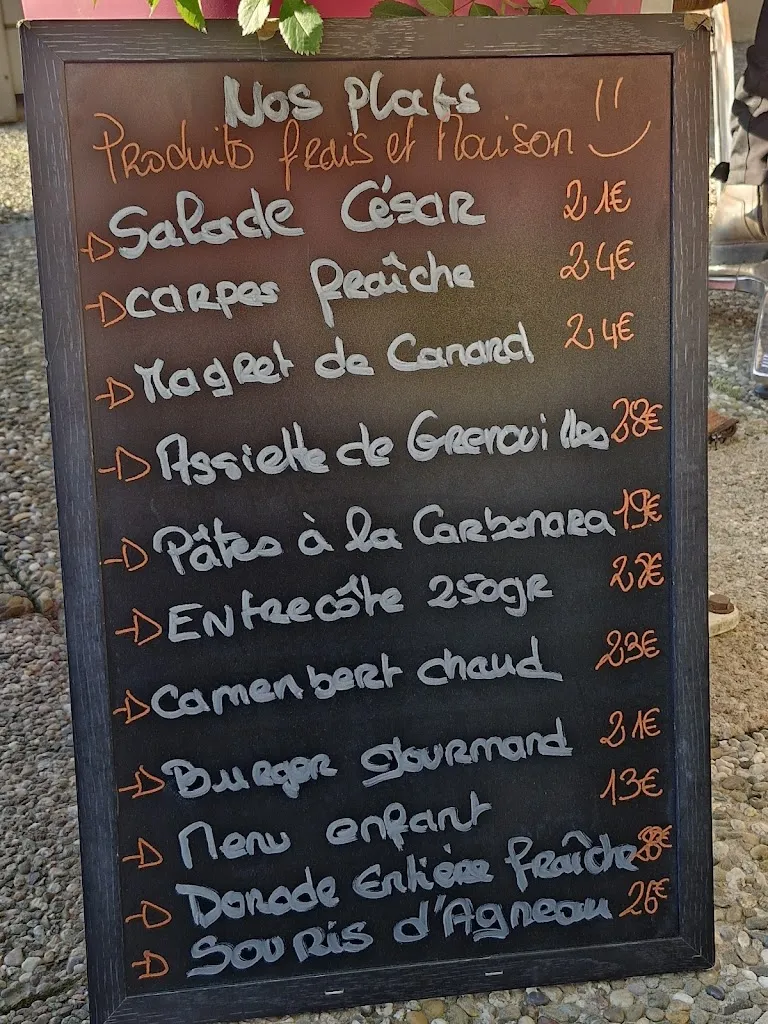 Nos plats
Produits frais et Maison
Salade César 21€
CARPES fraîche 24€
Magret de Canard 24€
Assiette de Grenouilles 28€
Pâtes à la Carbonara 19€
Entrecôte 250gr
Camembert chaud 23€
Burger gourmand 21€
Menu enfant 13€
Dorade Entière fraîche
Souris d'Agneau 26€